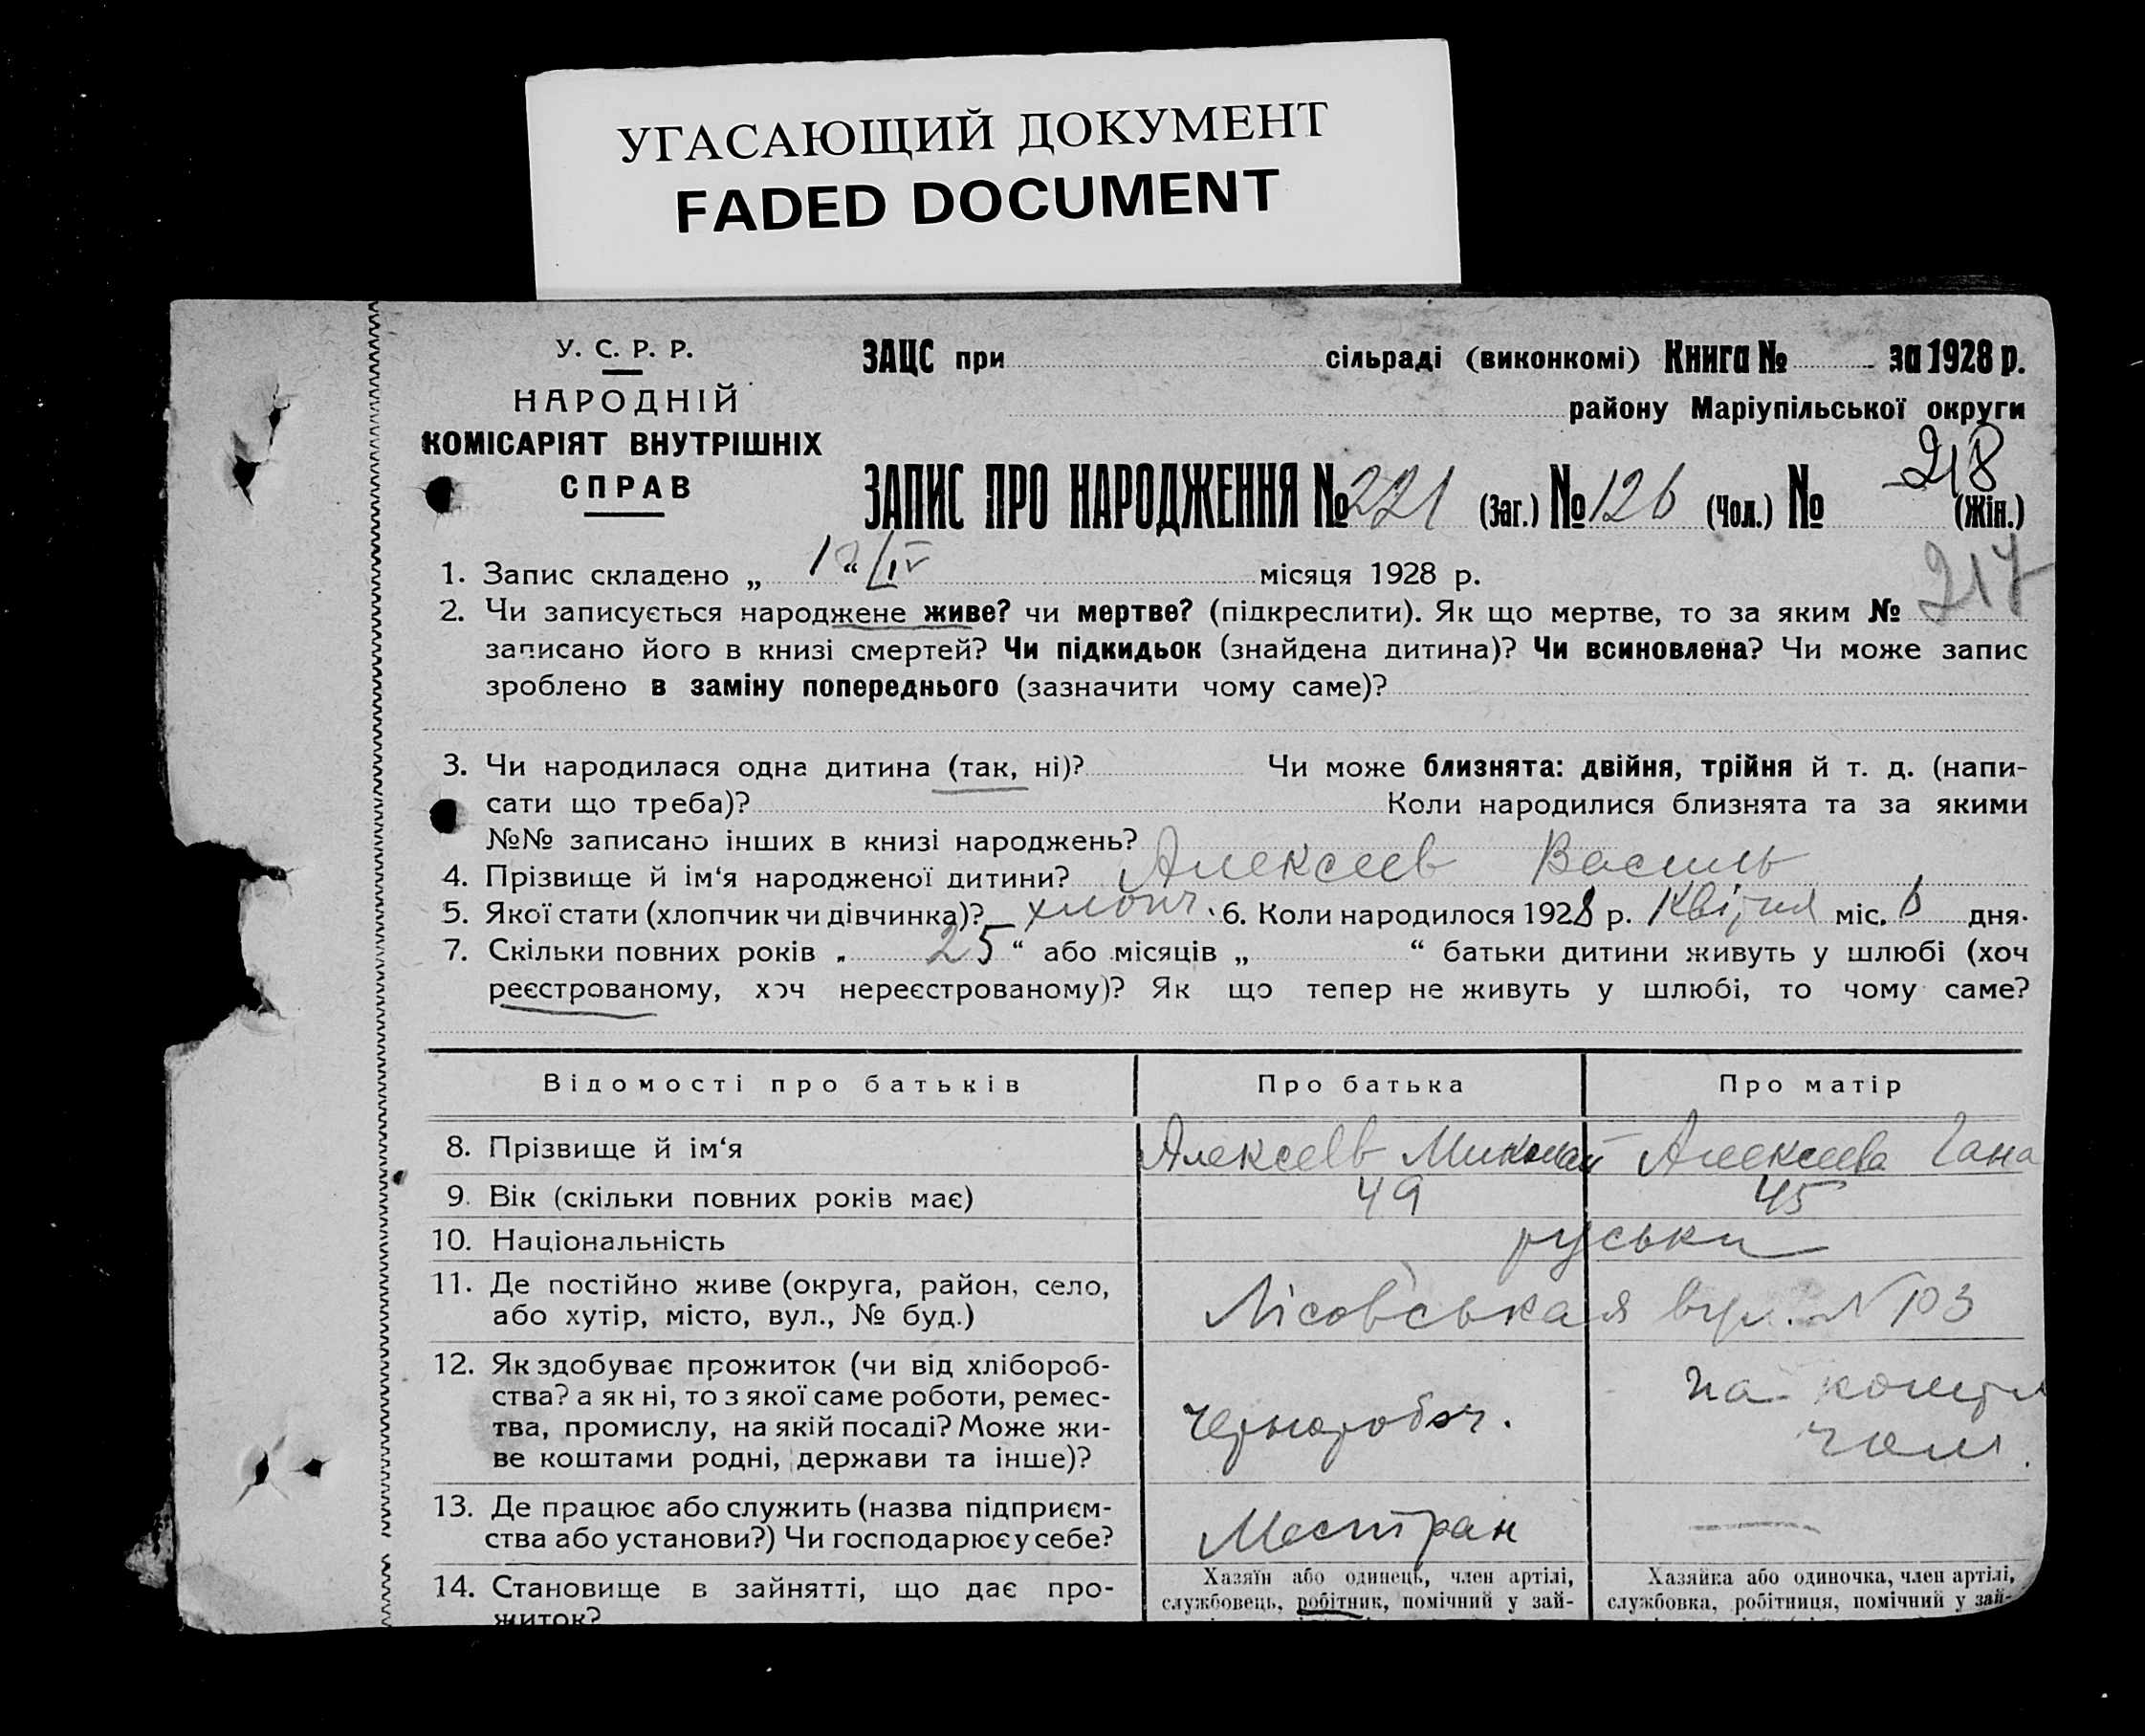 УГАСАЮЩИЙ ДОКУМЕНТ
FADED DOCUMENT
У. С. Р. Р.
НАРОДНІЙ
КОМІСАРІЯТ ВНУТРІШНІХ
СПРАВ
ЗАЦС при сільраді (виконкомі) Книга № за 1928 р.
району Маріупільської округи
218
ЗАПИС ПРО НАРОДЖЕННЯ № 221 (Заг.) № 126 (Чол.) № (Жін.)
1. Запис складено „ 12 “ IV місяця 1928 р.
217
2. Чи записується народжене живе? чи мертве? (підкреслити). Як що мертве, то за яким №
записано його в книзі смертей? Чи підкидьок (знайдена дитина)? Чи всиновлена? Чи може запис
зроблено в заміну попереднього (зазначити чому саме)?
3. Чи народилася одна дитина (так, ні)? Чи може близнята: двійня, трійня й т. д. (напи-
сати що треба)? Коли народилися близнята та за якими
№№ записано інших в книзі народжень?
4. Прізвище й ім‘я народженої дитини? Алексеев Василь
5. Якої стати (хлопчик чи дівчинка)? хлопч. 6. Коли народилося 1928 р. Квітня міс. 6 дня.
7. Скільки повних років „ 25 “ або місяців „ “ батьки дитини живуть у шлюбі (хоч
реєстрованому, хоч нереєстрованому)? Як що тепер не живуть у шлюбі, то чому саме?
Відомості про батьків Про батька Про матір
8. Прізвище й ім‘я Алексеев Миколай Алексеева Гана
9. Вік (скільки повних років має) 49 45
10. Національність руськи
11. Де постійно живе (округа, район, село,
або хутір, місто, вул., № буд.) Лісовськая вул. N 103
12. Як здобуває прожиток (чи від хлібороб-
ства? а як ні, то з якої саме роботи, ремес-
тва, промислу, на якій посаді? Може жи-
ве коштами родні, держави та інше)?
Чернороб оч.
на кошти
чол.
13. Де працює або служить (назва підприєм-
ства або установи?) Чи господарює у себе?
Местран
14. Становище в зайнятті, що дає про-
житок?
Хазяїн або одинець, член артілі,
службовець, робітник, помічний у зай-
Хазяйка або одиночка, член артілі,
службовка, робітниця, помічний у зай-